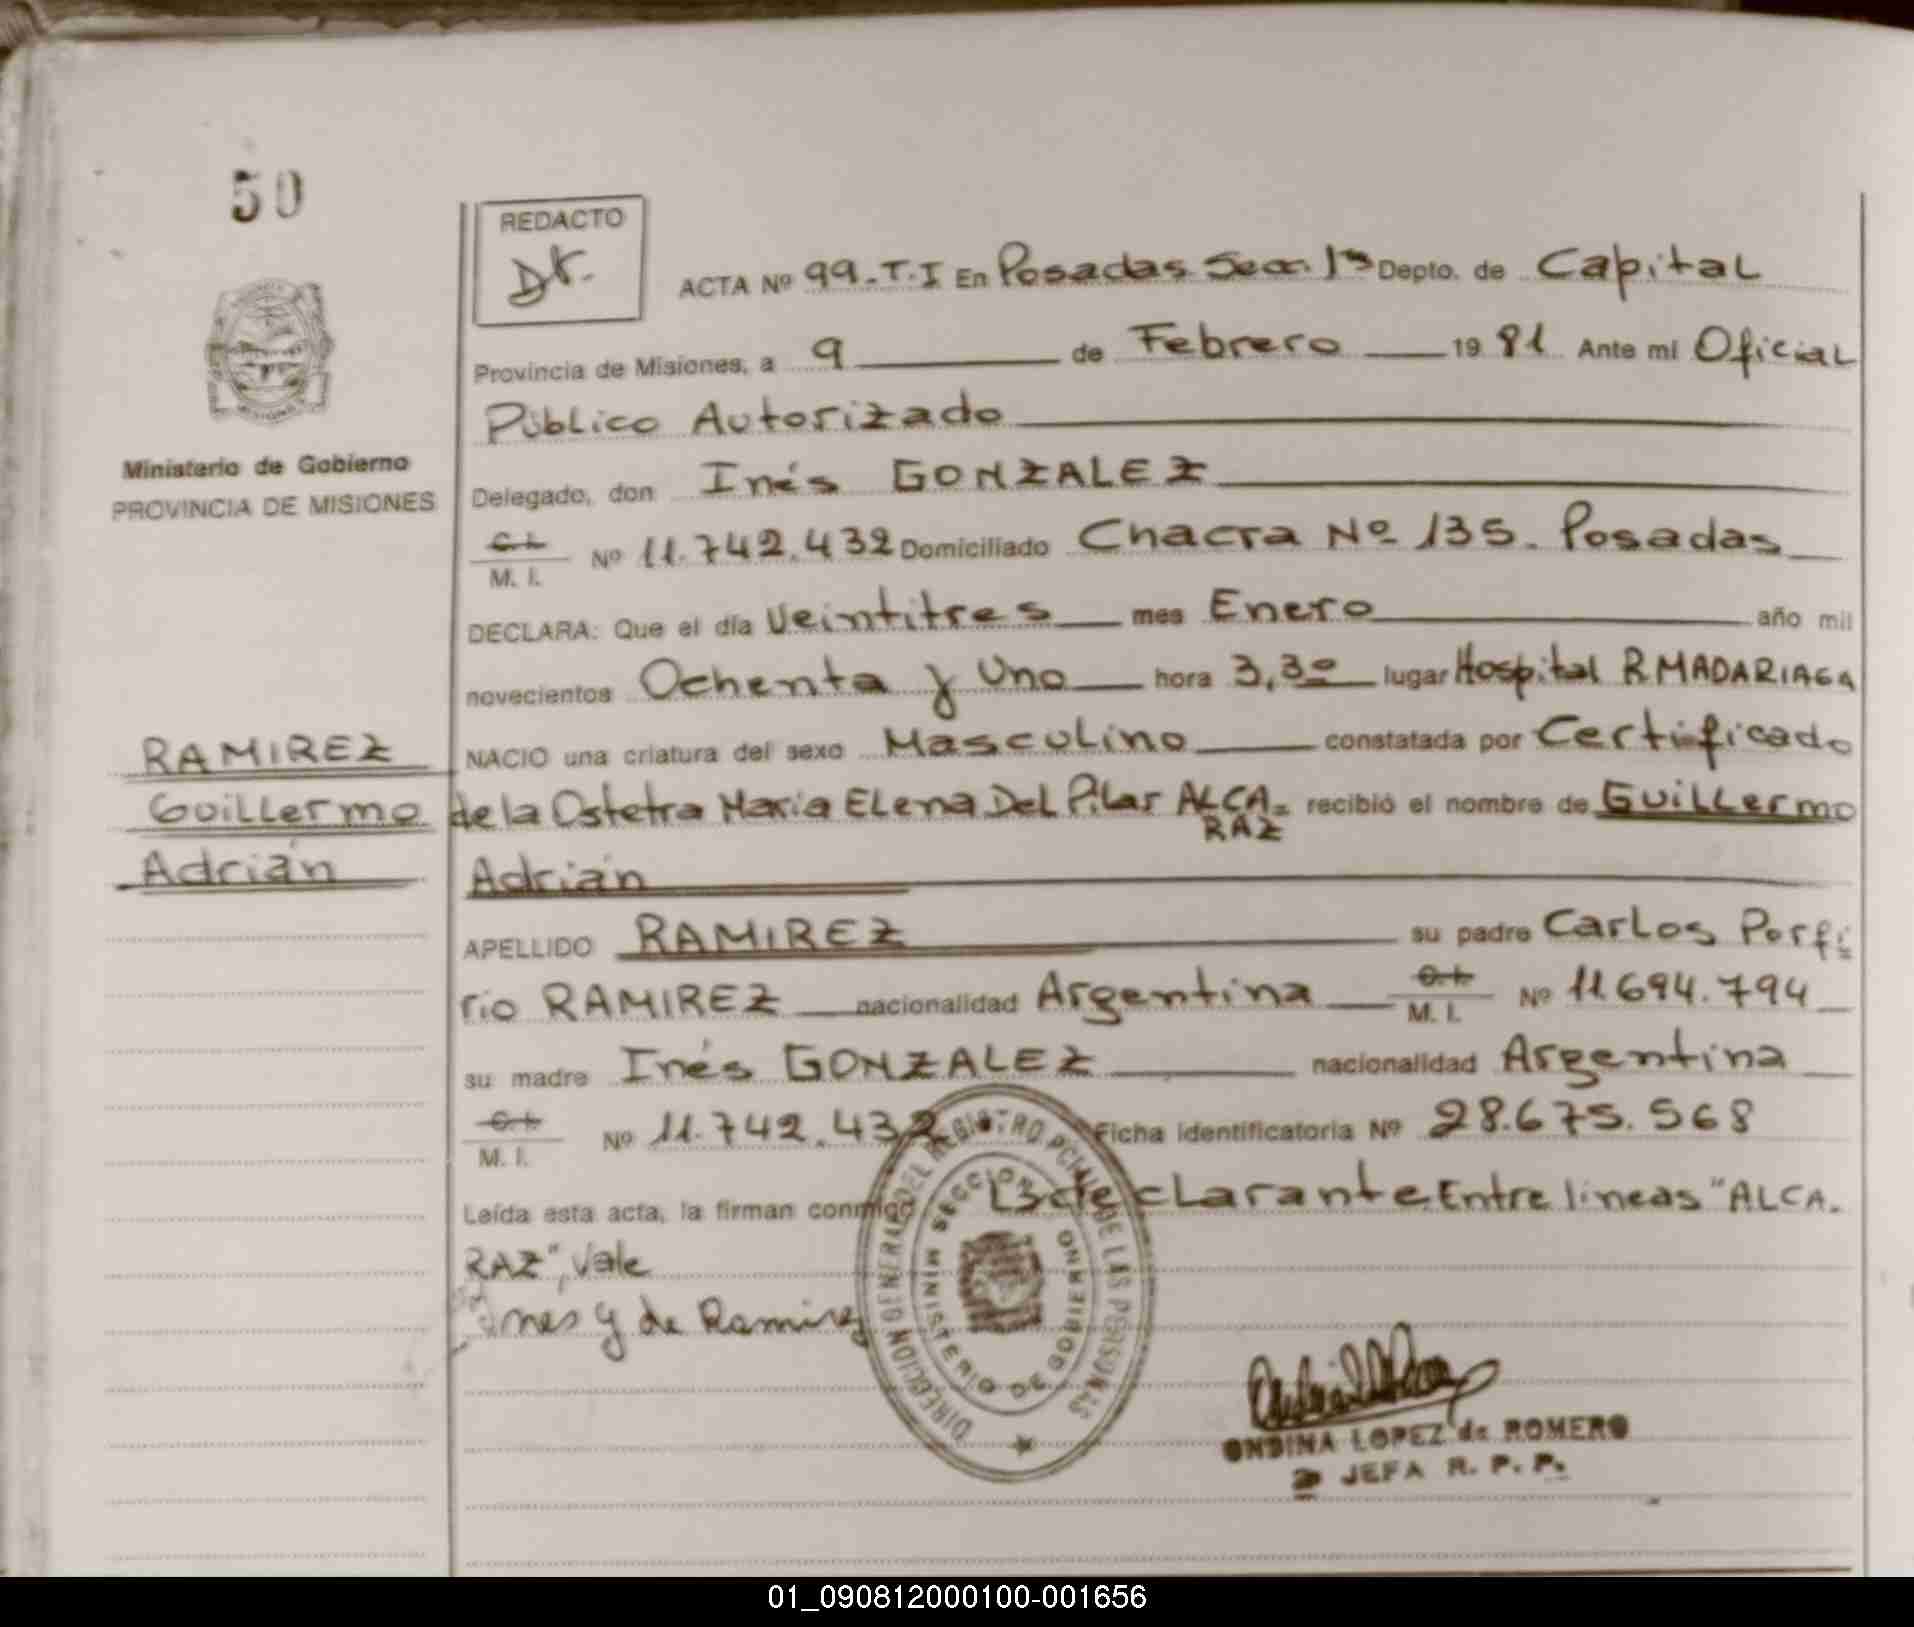 50
REDACTO
ACTA Nº 99-T.I En Posadas Secc. 1ª Depto. de Capital
Provincia de Misiones, a 9 de Febrero 1981 Ante mi Oficial
Público Autorizado
Ministerio de Gobierno
PROVINCIA DE MISIONES
Delegado, don Inés GONZALEZ
C. I.
M. I. Nº 11.742.432 Domiciliado Chacra Nº 135. Posadas
DECLARA: Que el día Veintitres mes Enero año mil
novecientos Ochenta y Uno hora 3,30 lugar Hospital R. MADARIAGA
NACIO una criatura del sexo Masculino constatada por Certificado
RAMIREZ
Guillermo
Adrián
de la Ostetra Maria Elena Del Pilar ALCA= recibió el nombre de Guillermo
RAZ
Adrián
APELLIDO RAMIREZ su padre Carlos Porfi
rio RAMIREZ nacionalidad Argentina C. I.
M. I. Nº 11.694.794
su madre Inés GONZALEZ nacionalidad Argentina
C. I.
M. I. Nº 11.742.432 Ficha identificatoria Nº 28.675.568
Leída esta acta, la firman conmigo La declarante. Entre lineas "ALCA.
RAZ", Vale
Ines G de Ramirez
DIRECCION GENERAL DEL REGISTRO PCIAL. DE LAS PERSONAS
MINISTERIO DE GOBIERNO
SECCION
ONDINA LOPEZ de ROMERO
JEFA R. P. P.
01_090812000100-001656